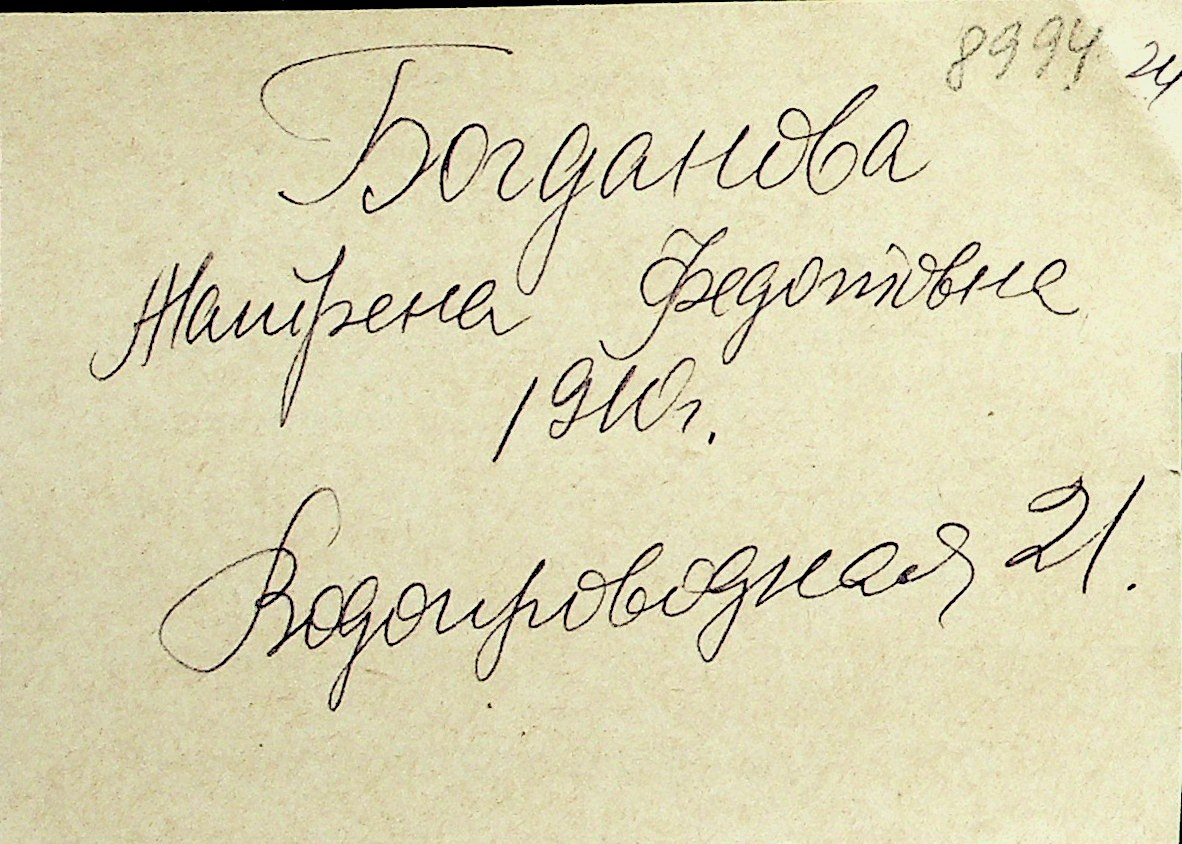 8994 24
Богданова
Матрена Федотовна
1910г.
Водопроводная 21.